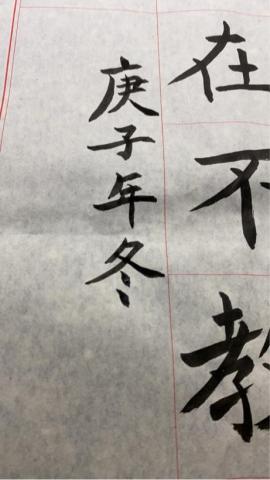 在不教
庚子年冬